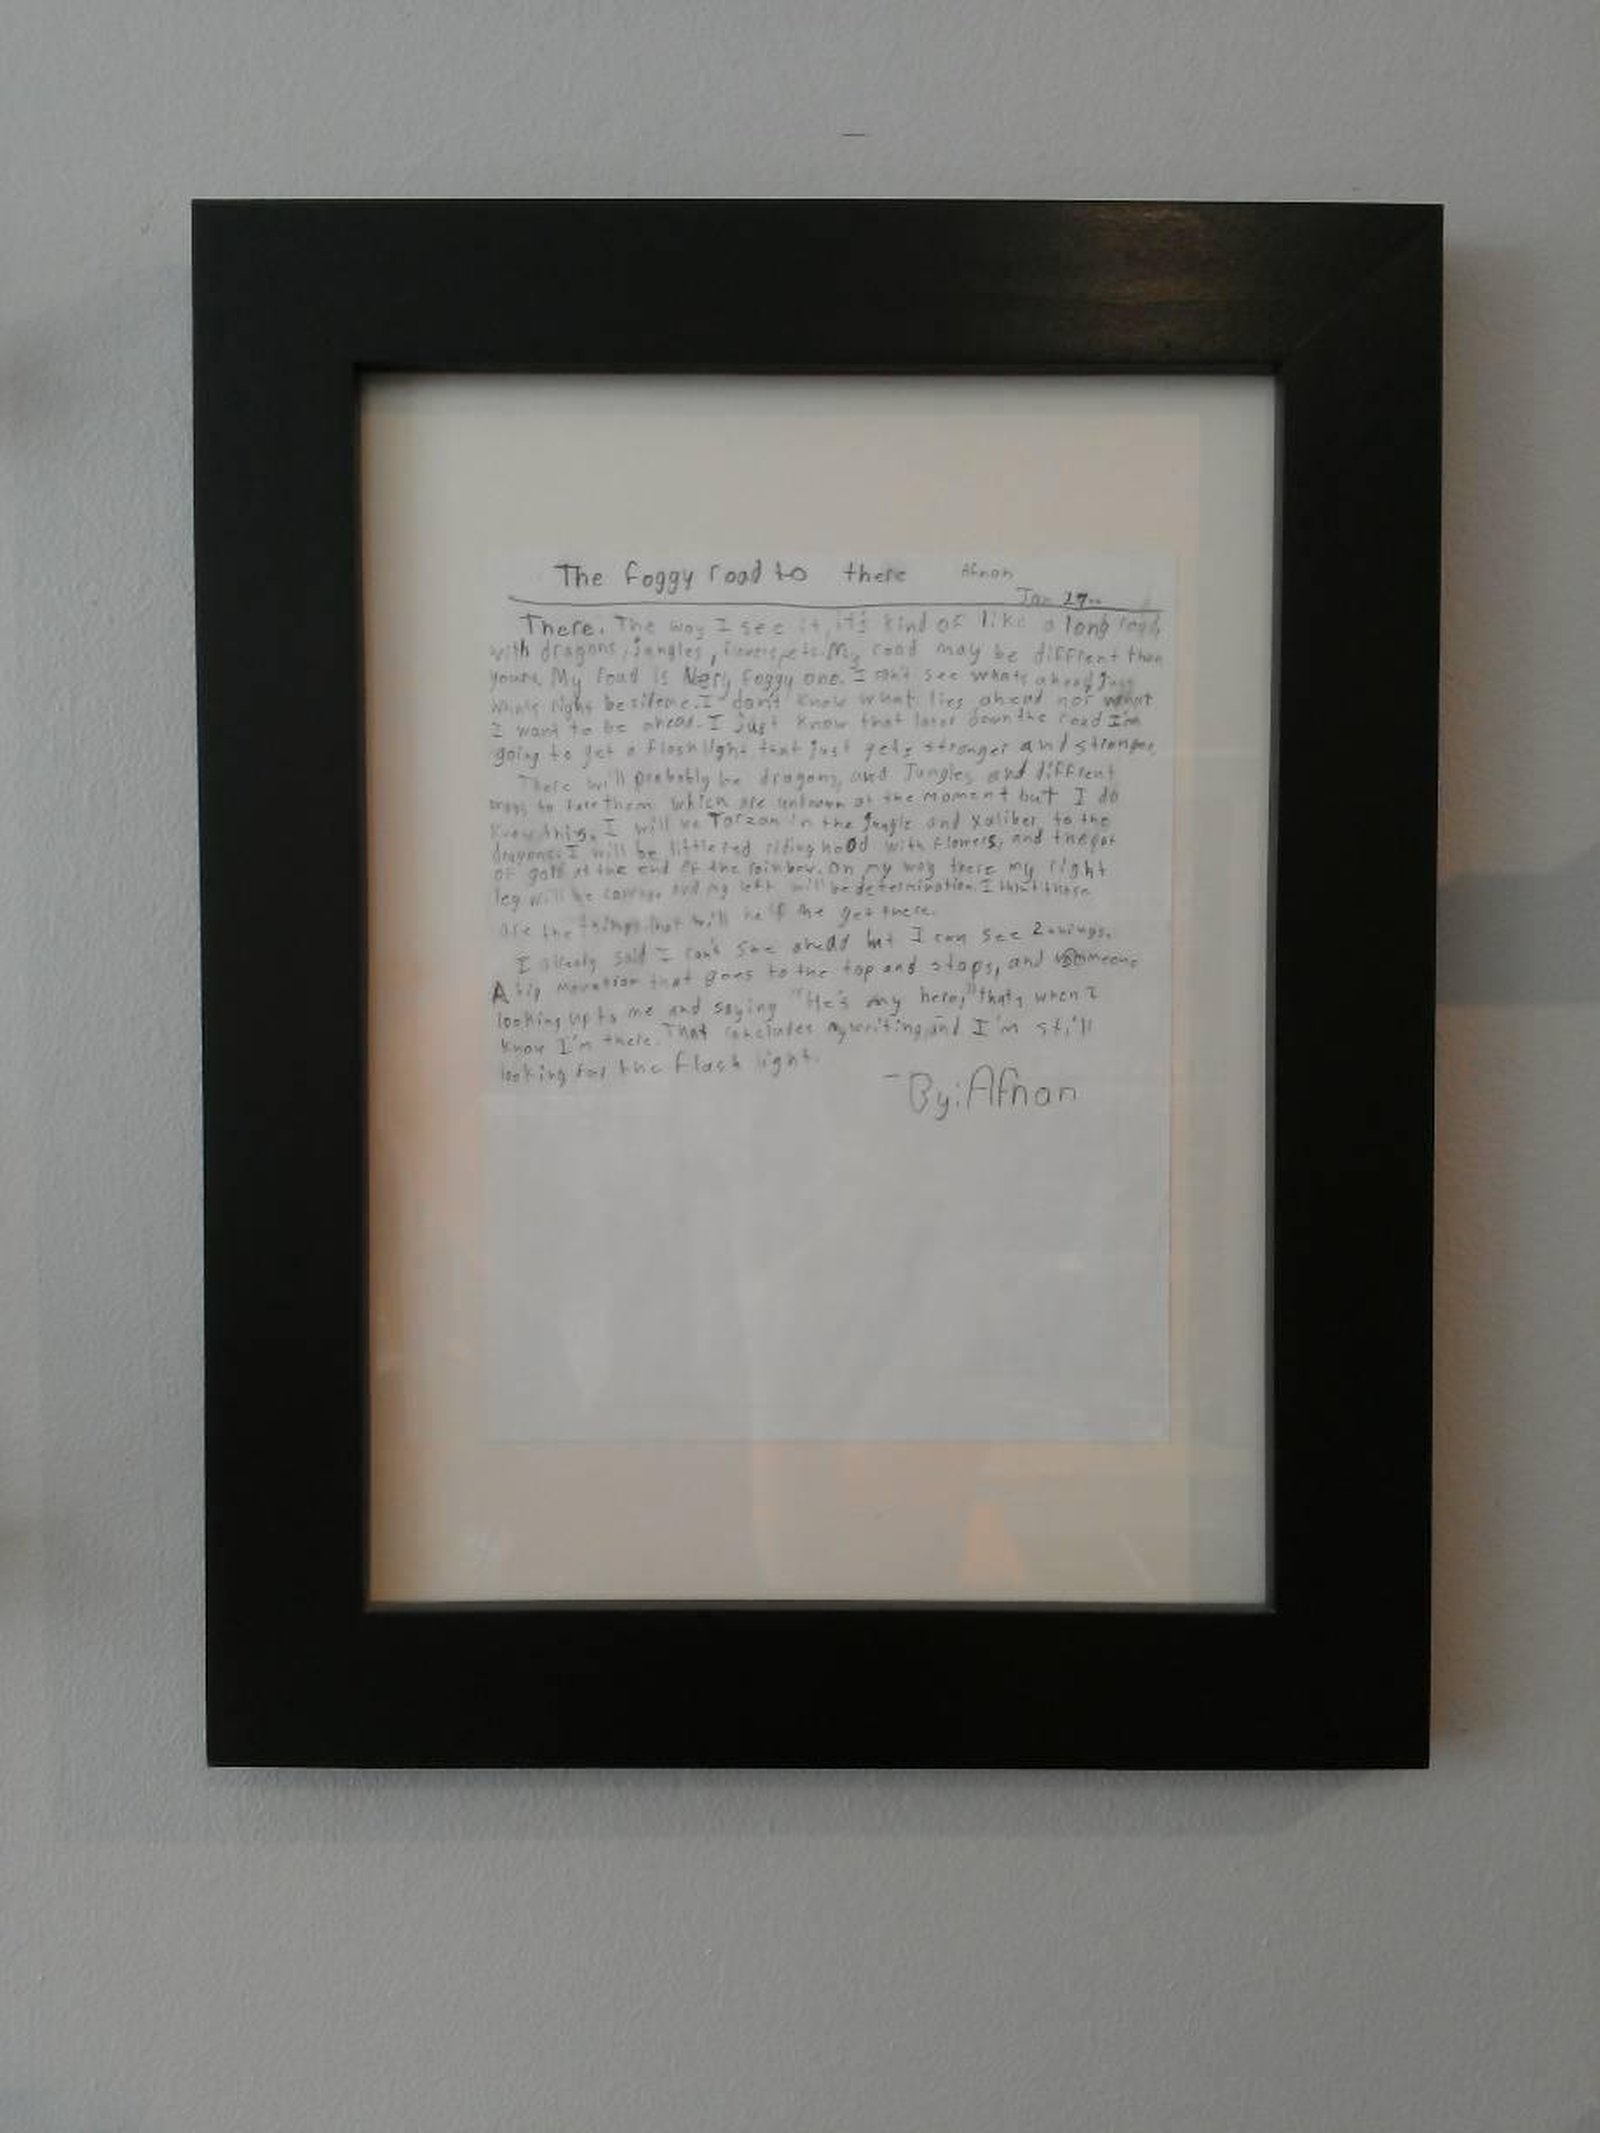 The foggy road to there Afnan
Jan 27
There. The way I see it, it's kind of like a long road,
with dragons, jungles, flowers, etc. My road may be diffrent than
yours. My road is Very foggy one. I can't see whats ahead just
whats right beside me. I don't know what lies ahead nor what
I want to be ahead. I just know that later down the road I'm
going to get a flashlight that just gets stronger and stronger.
There will probably be dragons, and Jungles and diffrent
ways to face them which are unknown at the moment but I do
know this. I will be Tarzan in the jungle and Xaliber to the
dragons. I will be little red riding hood with flowers, and the pot
of gold at the end of the rainbow. On my way there my right
leg will be courage and my left will be determination. I think these
are the things that will help me get there.
I already said I can't see ahead but I can see 2 things.
A big mountain that goes to the top and stops, and someone
looking up to me and saying "He's my hero," thats when I
know I'm there. That concludes my writing, and I'm still
looking for the flash light.
- By: Afnan